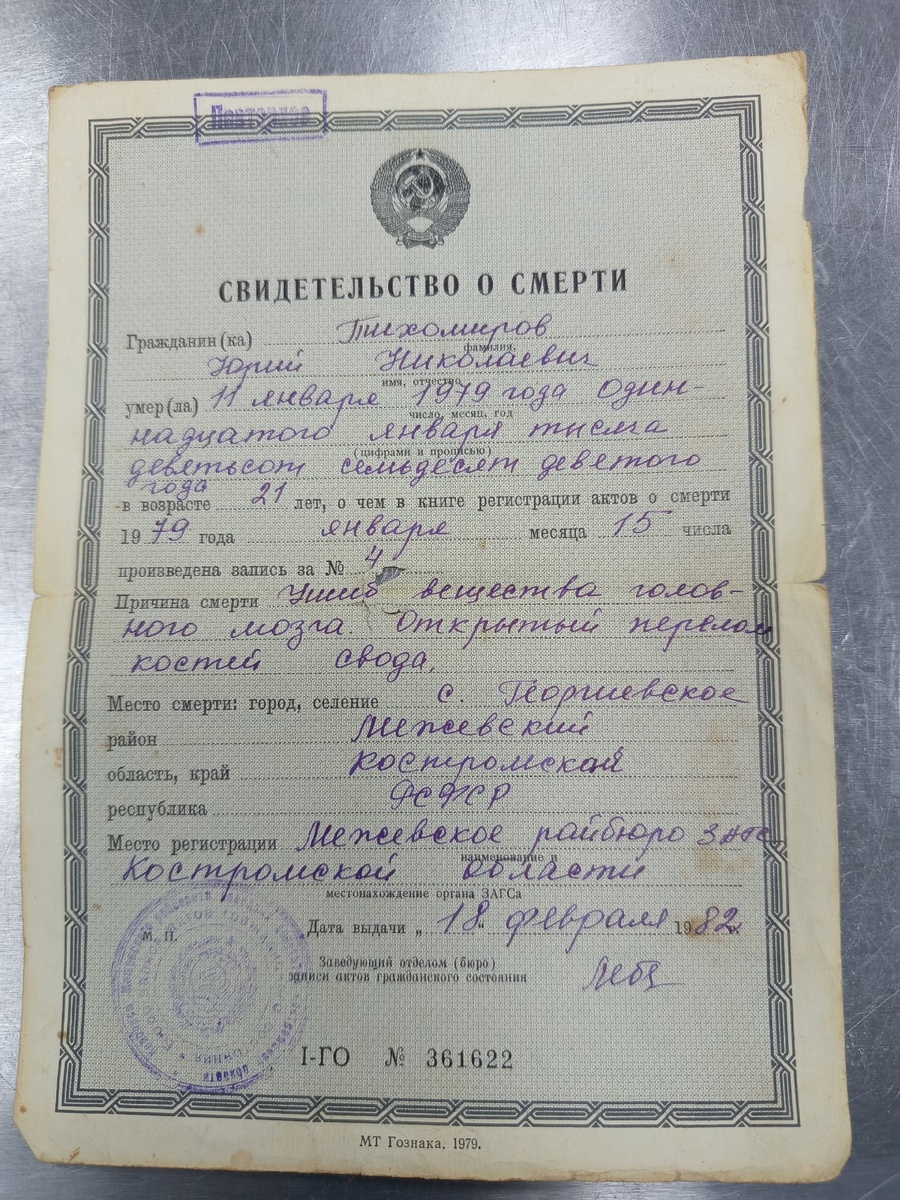 Повторное
СВИДЕТЕЛЬСТВО О СМЕРТИ
Гражданин (ка) Тихомиров
фамилия,
Юрий Николаевич
имя, отчество
умер(ла) 11 января 1979 года Один-
число, месяц, год
надцатого января тысяча
(цифрами и прописью)
девятьсот семьдесят девятого
года
в возрасте 21 лет, о чем в книге регистрации актов о смерти
1979 года января месяца 15 числа
произведена запись за № 4
Причина смерти Ушиб вещества голов-
ного мозга. Открытый перелом
костей свода.
Место смерти: город, селение с. Георгиевское
район Межевский
область, край Костромская
республика РСФСР
Место регистрации Межевское райбюро ЗАГС
наименование и
Костромской области
местонахождение органа ЗАГСа
Дата выдачи „ 18 " февраля 1982 г.
М. П.
Заведующий отделом (бюро)
записи актов гражданского состояния
I-ГО № 361622
МТ Гознака, 1979.